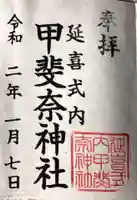 奉拝
延喜式内
甲斐奈神社
令和二年一月七日
延喜式
内甲斐
奈神社